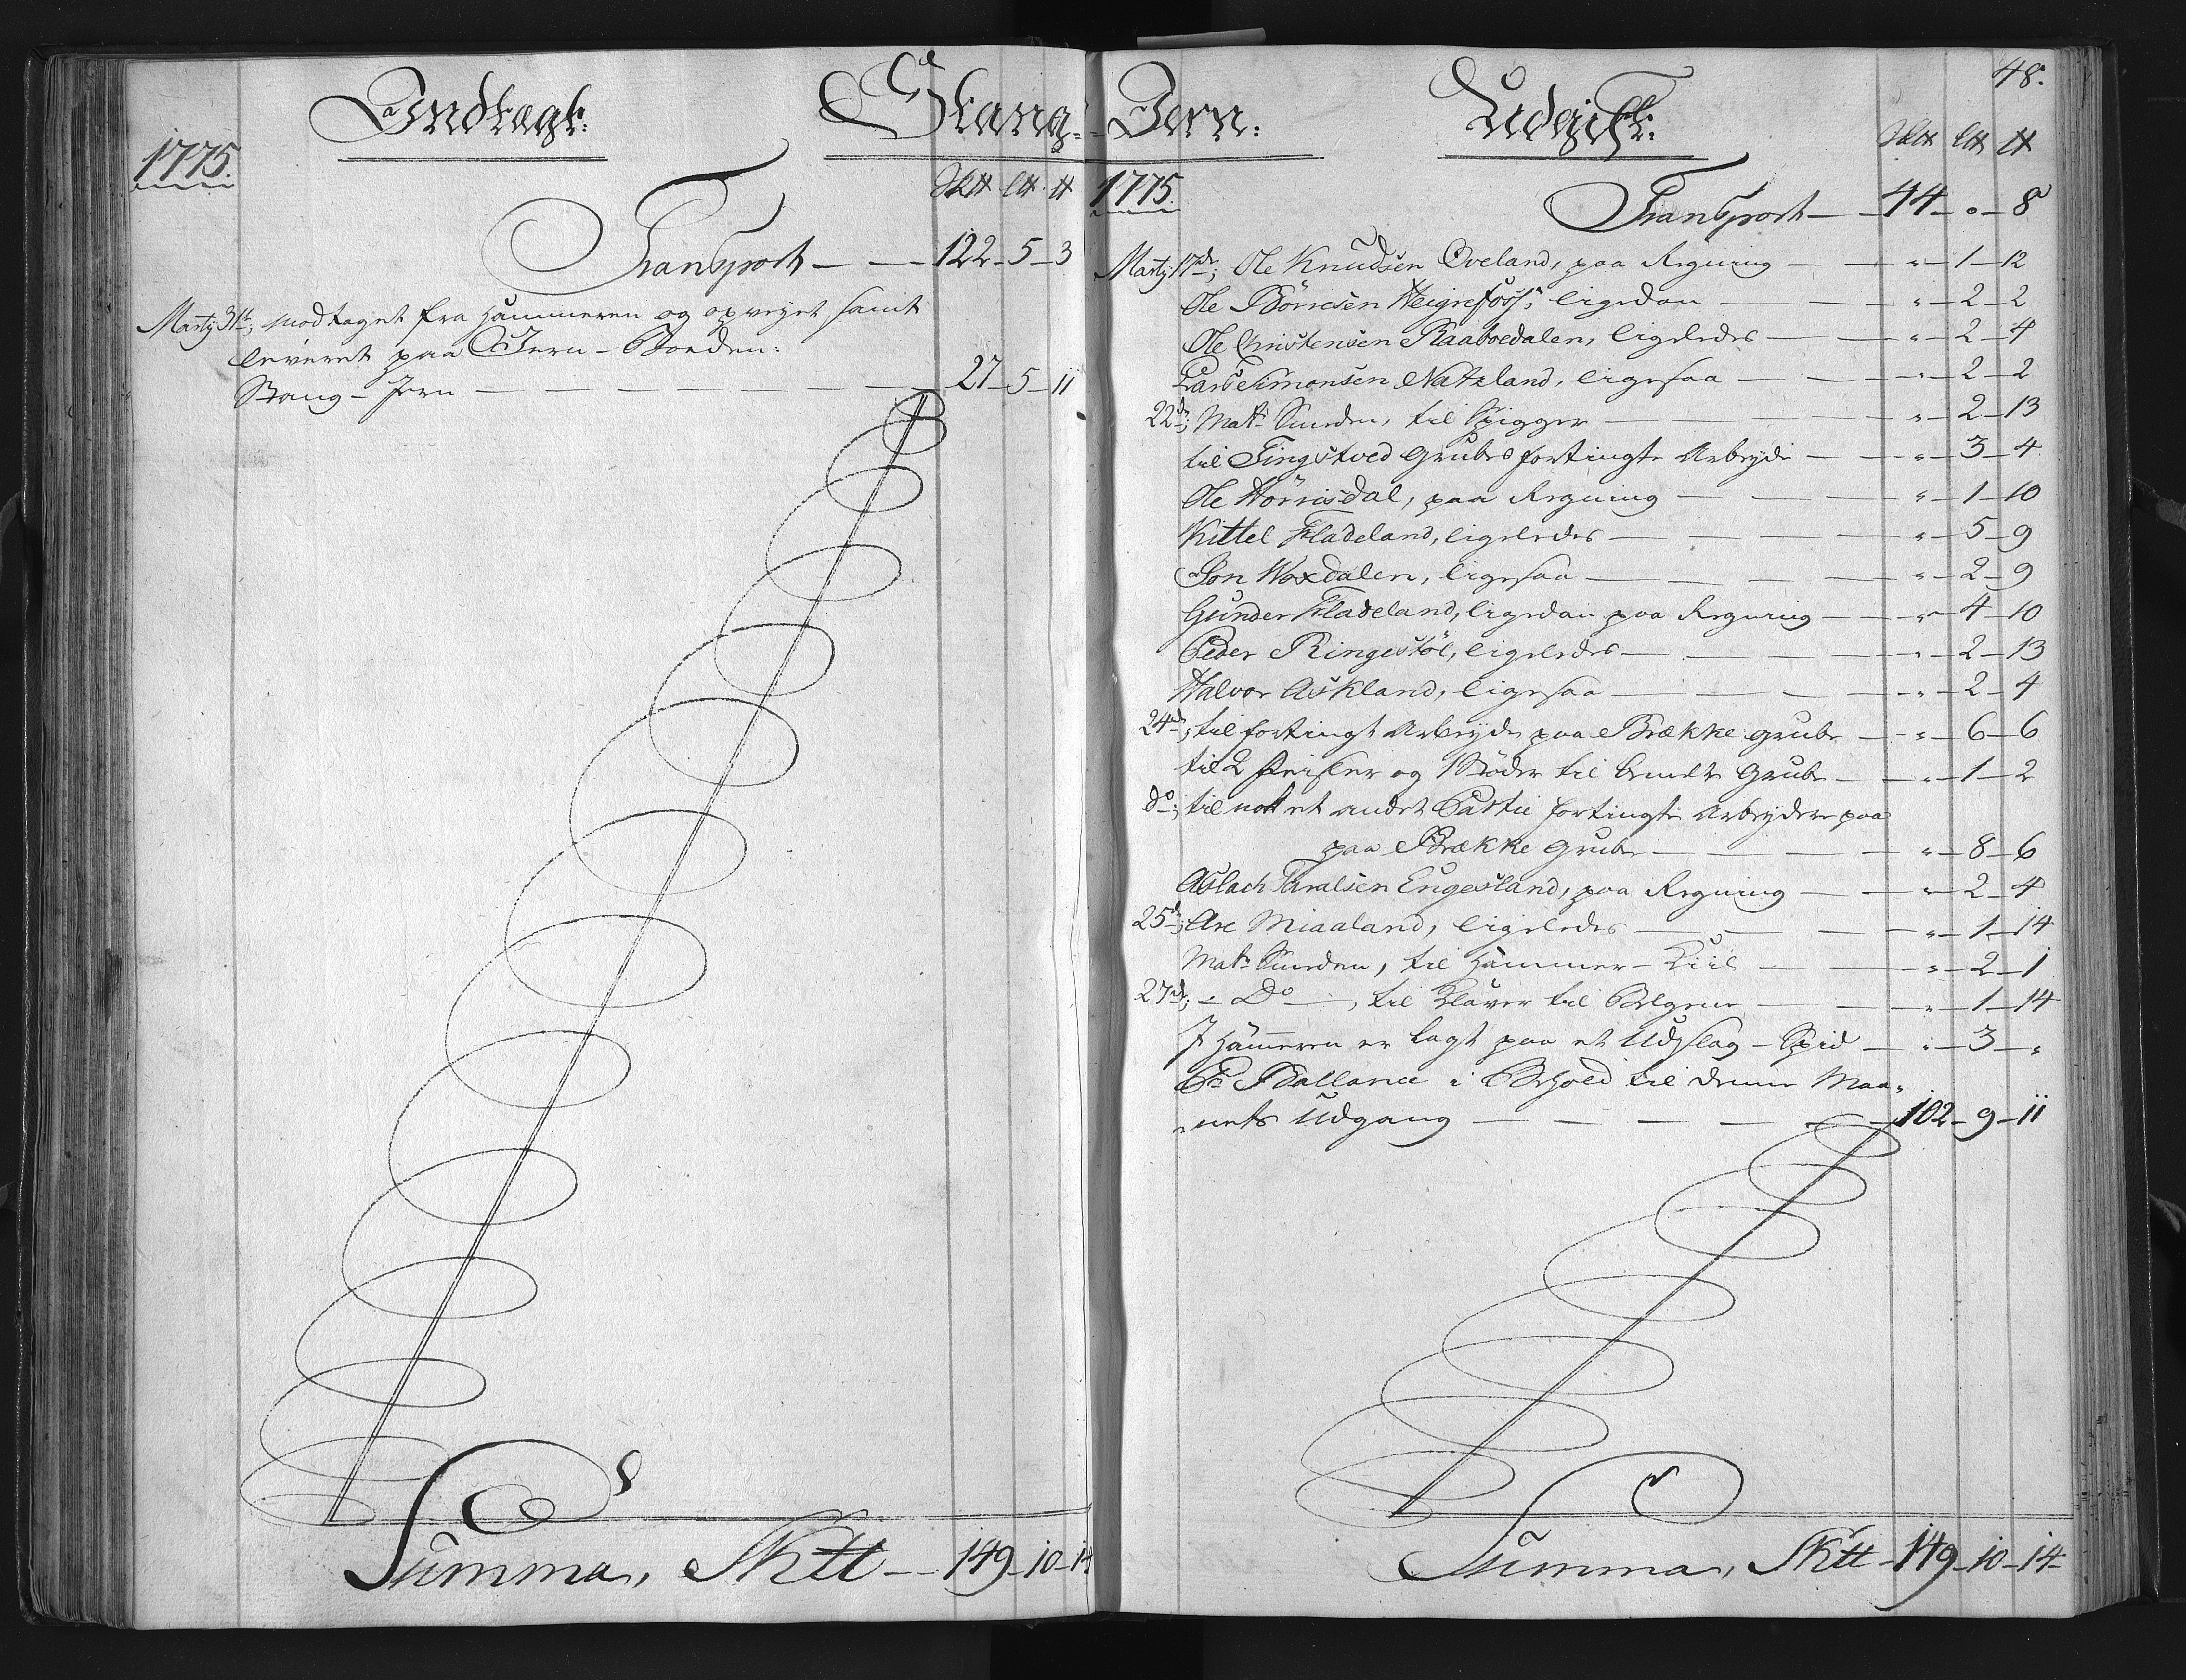 Indtægt:
Stang-
1775.
Sk℔ L℔ ℔
Transport — — 122 - 5 - 3
Martÿ 31te; modtaget fra Hammeren og opveyet samt
leveret paa Jern-Boeden:
Stang-Jern — — — 27 - 5 - 11
Summa, Sk℔ — 149 - 10 - 14
48.
Jern:
Udgift:
1775.
Sk℔ L℔ ℔
Transport — 44 - " - 8
Martÿ 17de; Ole Knudsen Oveland, paa Regning — " - 1 - 12
Ole Börresen Heigrefoss, ligedan — " - 2 - 2
Ole Christensen Raaboedalen, ligeledes — " - 2 - 4
Lars Simonsen Natzland, ligesaa — " - 2 - 2
22de; Mats Smeden, til Spigger — " - 2 - 13
til Tingstved Grubes fortingte Arbeyde — " - 3 - 4
Ole Hörrisdal, paa Regning — " - 1 - 10
Kittel Fladeland, ligeledes — " - 5 - 9
Jon Woxdalen, ligesaa — " - 2 - 9
Gunder Fladeland, ligedan paa Regning — " - 4 - 10
Peder Ringestöl, ligeledes — " - 2 - 13
Halvor Askland, ligesaa — " - 2 - 4
24de; til fortingt Arbeyde paa Brække Grube — " - 6 - 6
til 2 Feisler og 1 Böder til Grube — " - 1 - 2
do; til nok et andet Partie fortingte Arbeydere paa
paa Brække Grube — " - 8 - 6
Aslach Taralsen Engesland, paa Regning — " - 2 - 4
25de; Are Miaaland, ligeledes — " - 1 - 14
Mats Smeden, til Hammer-Kiil — " - 2 - 1
27de; - Do —, til Klaver til Belgene — " - 1 - 14
I Hammeren er lagt paa et Udslag-Spid — " - 3 - "
Pr Ballance i Behold til denne Maa-
nets Udgang — 102 - 9 - 11
Summa, Sk℔ - 149 - 10 - 14